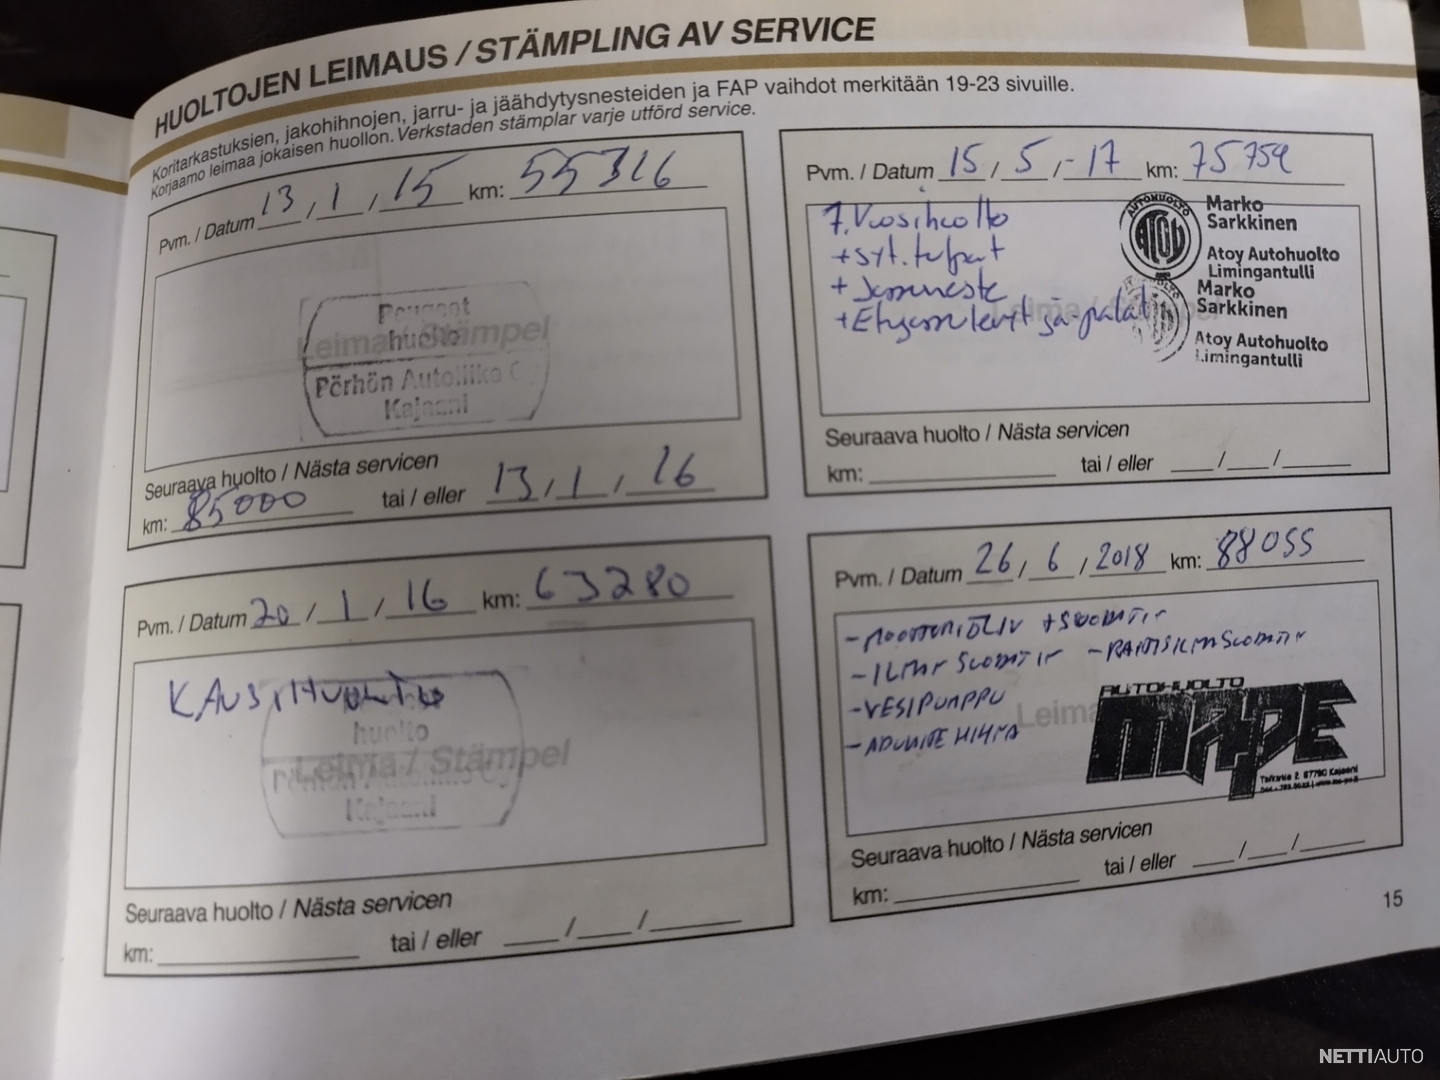 HUOLTOJEN LEIMAUS / STÄMPLING AV SERVICE
Koritarkastuksien, jakohihnojen, jarru- ja jäähdytysnesteiden ja FAP vaihdot merkitään 19-23 sivuille.
Korjaamo leimaa jokaisen huollon. Verkstaden stämplar varje utförd service.
Pvm. / Datum 13 / 1 / 15 km: 55316
Leima / Stämpel
Peugeot
huolto
Pörhön Autoliike
Kajaani
Seuraava huolto / Nästa servicen
km: 85000 tai / eller 13 / 1 / 16
Pvm. / Datum 20 / 1 / 16 km: 63280
KAUSIHUOLTO
huolto
Leima / Stämpel
Kajaani
Seuraava huolto / Nästa servicen
km: tai / eller / /
Pvm. / Datum 15 / 5 / -17 km: 75759
7. Vuosihuolto
+ syt. tulpat
+ Jarruneste
+ Etujarrulevyt ja -palat
AUTOHUOLTO
ATOY
Marko
Sarkkinen
Atoy Autohuolto
Limingantulli
Marko
Sarkkinen
Atoy Autohuolto
Limingantulli
Seuraava huolto / Nästa servicen
km: tai / eller / /
Pvm. / Datum 26 / 6 / 2018 km: 88055
- MOOTTORIÖLJY + SUODATIN
- ILMANSUODATIN - RAITISILMASUODATIN
- VESIPUMPPU
- APULAITEHIHNA
Leima
AUTOHUOLTO
MAPE
87700 Kajaani
Seuraava huolto / Nästa servicen
km: tai / eller / /
15
NETTIAUTO